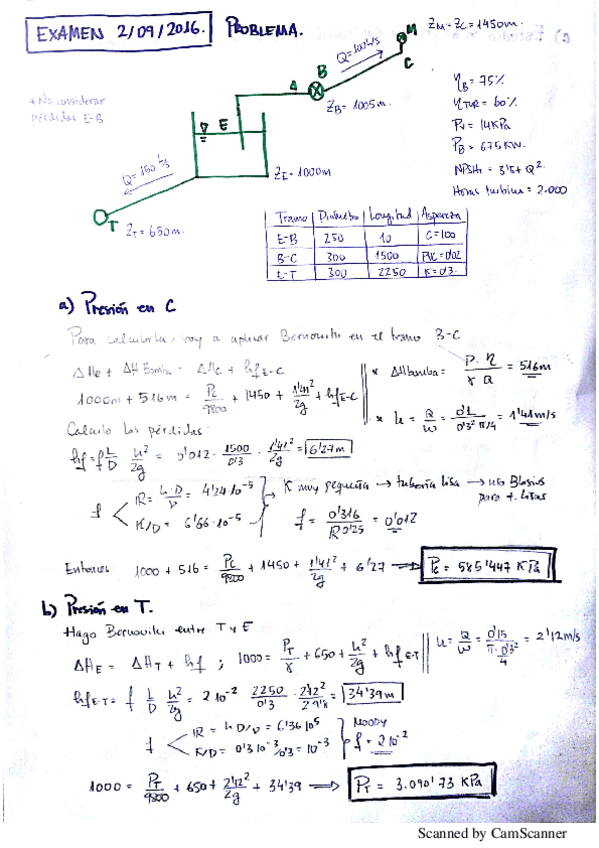 EXAMEN 2/09/2016. PROBLEMA.
M Z_M = Z_C = 1450m.
Q=100 l/s
C
B
A
Z_B = 1005m.
* No considerar
pérdidas E-B
E
Z_E = 1000m
Q=150 l/s
T
Z_T = 650m.
η_B = 75%
η_TUR = 60%
P_V = 14KPa
P_B = 675KW.
NPSHr = 3'5+Q²
Horas turbina = 2.000
Tramo Diámetro Longitud Aspereza
E-B 250 10 C=100
B-C 300 1500 PVC=0'02
E-T 300 2250 K=0'3
a) Presión en C
Para calcularla, voy a aplicar Bernouilli en el tramo B-C
ΔHe + ΔH Bomba = ΔHc + hf E-C
* ΔHbomba = P·η / γ Q = 516m
1000m + 516m = Pc/9800 + 1450 + 1'41²/2g + hf E-C
* u = Q/w = 0'1 / 0'3² π/4 = 1'41m/s
Calculo las pérdidas
hf = f L/D u²/2g = 0'012 · 1500/0'3 · 1'41²/2g = 6'27m
f
IR = u·D/ν = 4'24 10⁻⁵
K/D = 6'66·10⁻⁵
K muy pequeña → tubería lisa → uso Blasius
para t. lisas
f = 0'316 / IR 0'25 = 0'012
Entonces 1000 + 516 = Pc/9800 + 1450 + 1'41²/2g + 6'27 → Pc = 585'447 KPa
b) Presión en T.
Hago Bernouilli entre T y E
ΔH_E = ΔH_T + hf ; 1000 = P_T/γ + 650 + u²/2g + hf E-T
u = Q/w = 0'15 / π·0'3²/4 = 2'12m/s
hf E-T = f L/D u²/2g = 2 10⁻² 2250/0'3 · 2'12²/2 9'8 = 34'39m
f
IR = u D/ν = 6'36 10⁵
K/D = 0'3 10⁻³/0'3 = 10⁻³
Moody
f = 2 10⁻²
1000 = P_T/9800 + 650 + 2'12²/2g + 34'39 → P_T = 3.090'73 KPa
Scanned by CamScanner